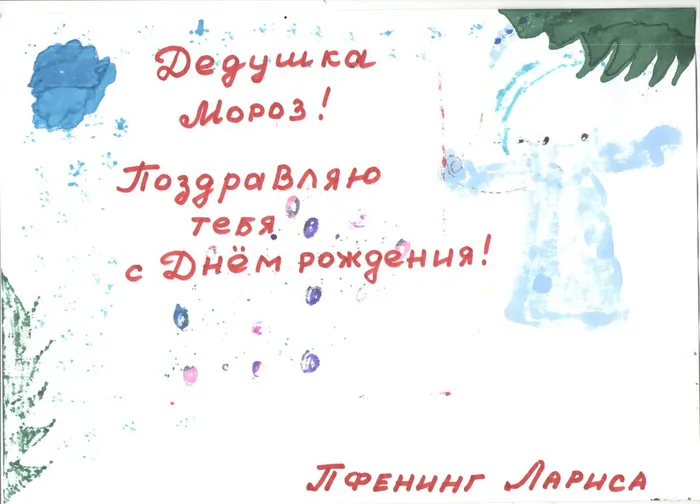 Дедушка
Мороз!
Поздравляю
тебя
с Днём рождения!
Пфенинг Лариса